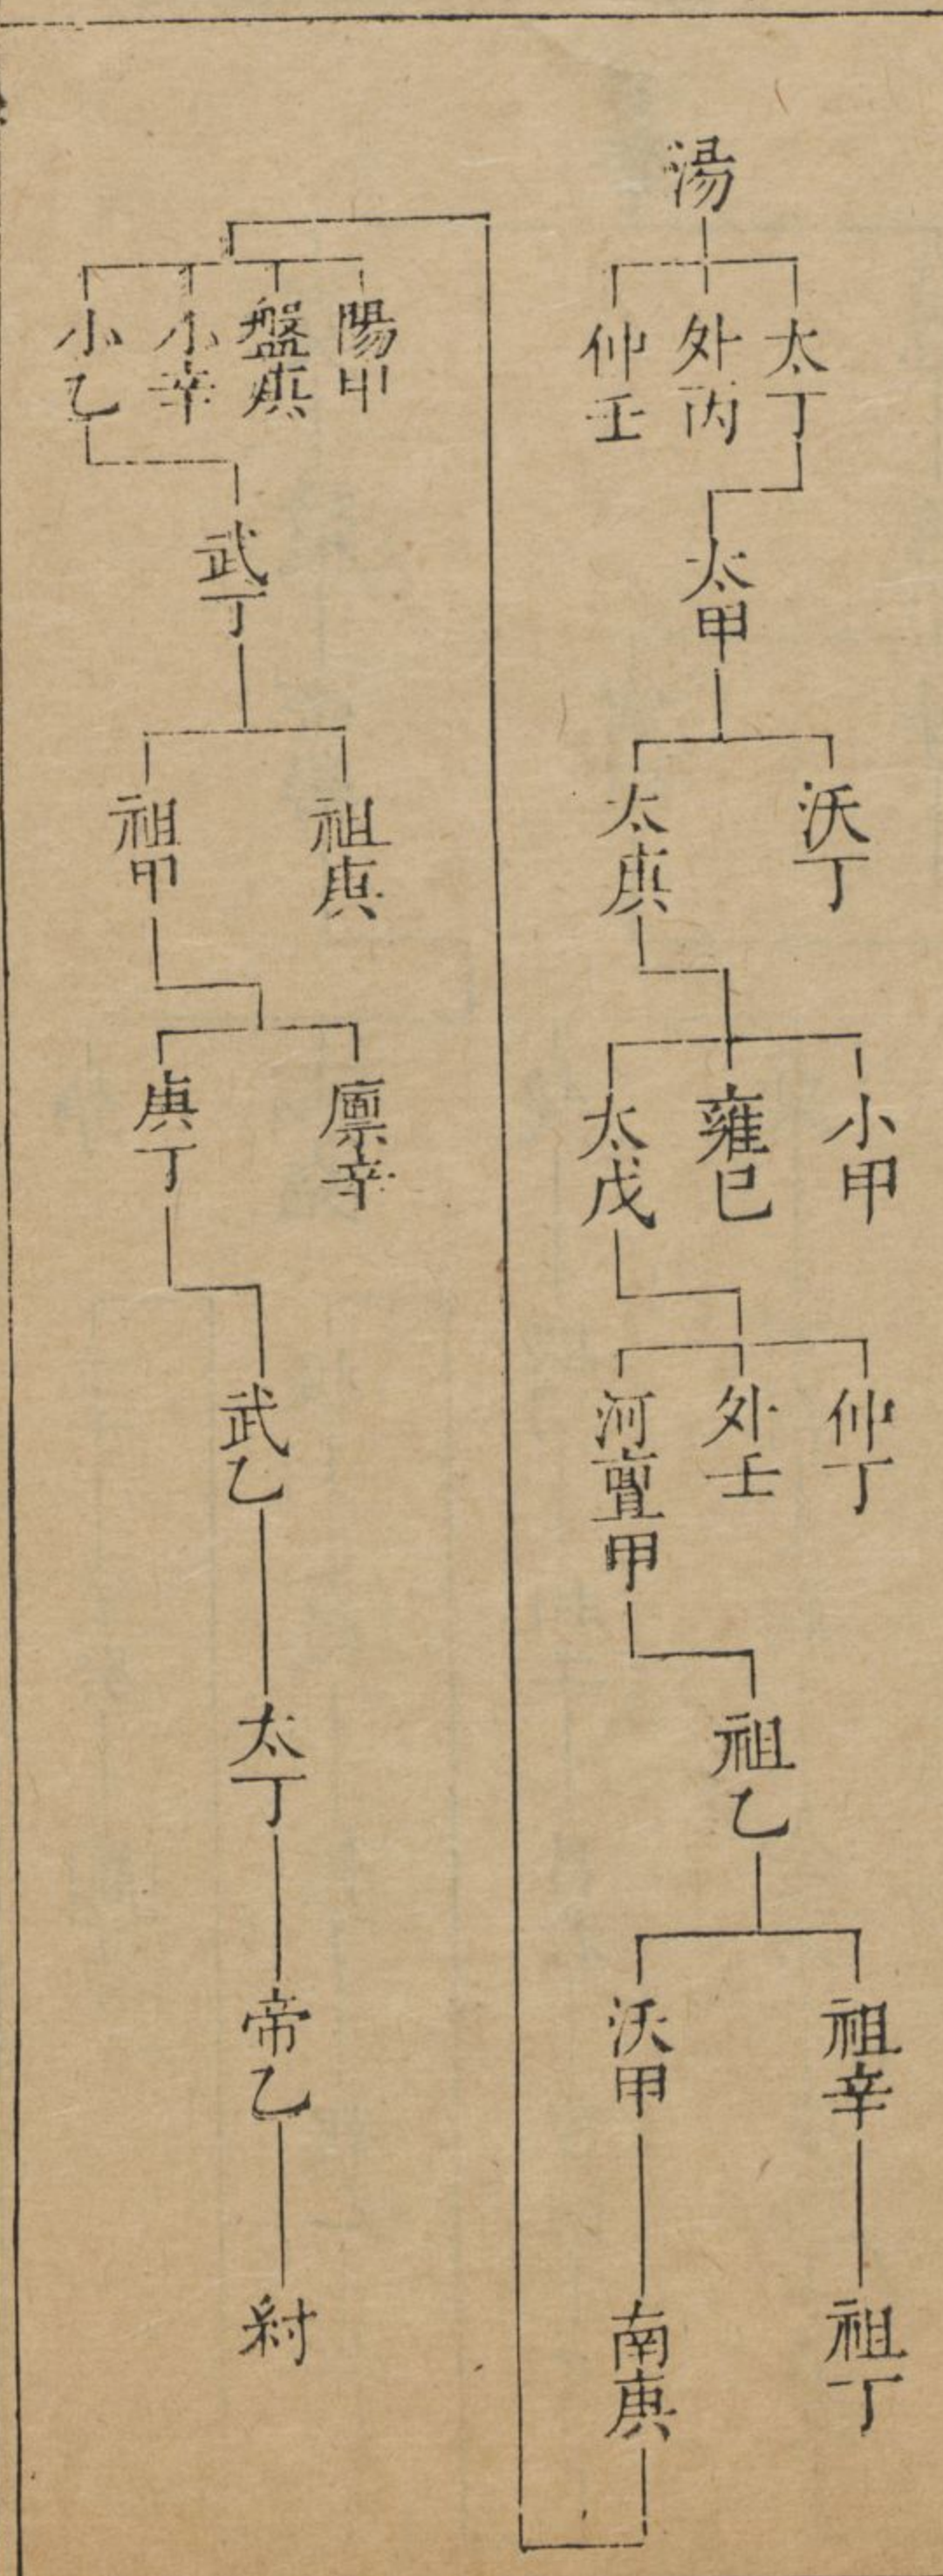 湯
太丁
外丙
仲壬
太甲
沃丁
太庚
小甲
雍己
太戊
仲丁
外壬
河亶甲
祖乙
祖辛
沃甲
祖丁
南庚
陽甲
盤庚
小辛
小乙
武丁
祖庚
祖甲
廩辛
庚丁
武乙
太丁
帝乙
紂